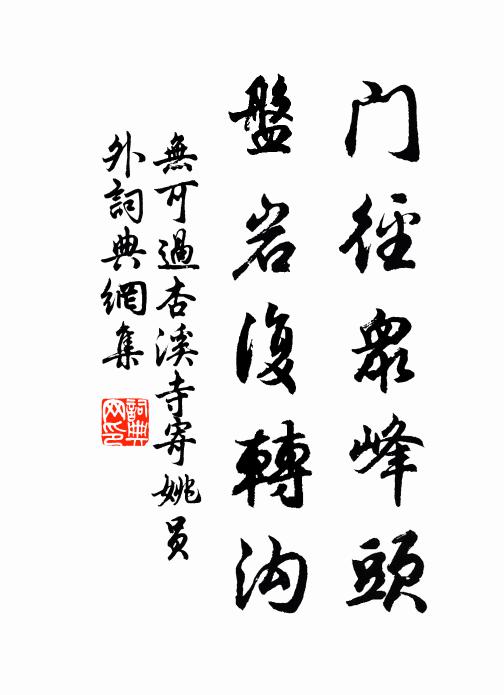 门徑衆峰頭
盤岩復轉沟
無可過杏溪寺寄姚員
外詞典網集
詞典网印